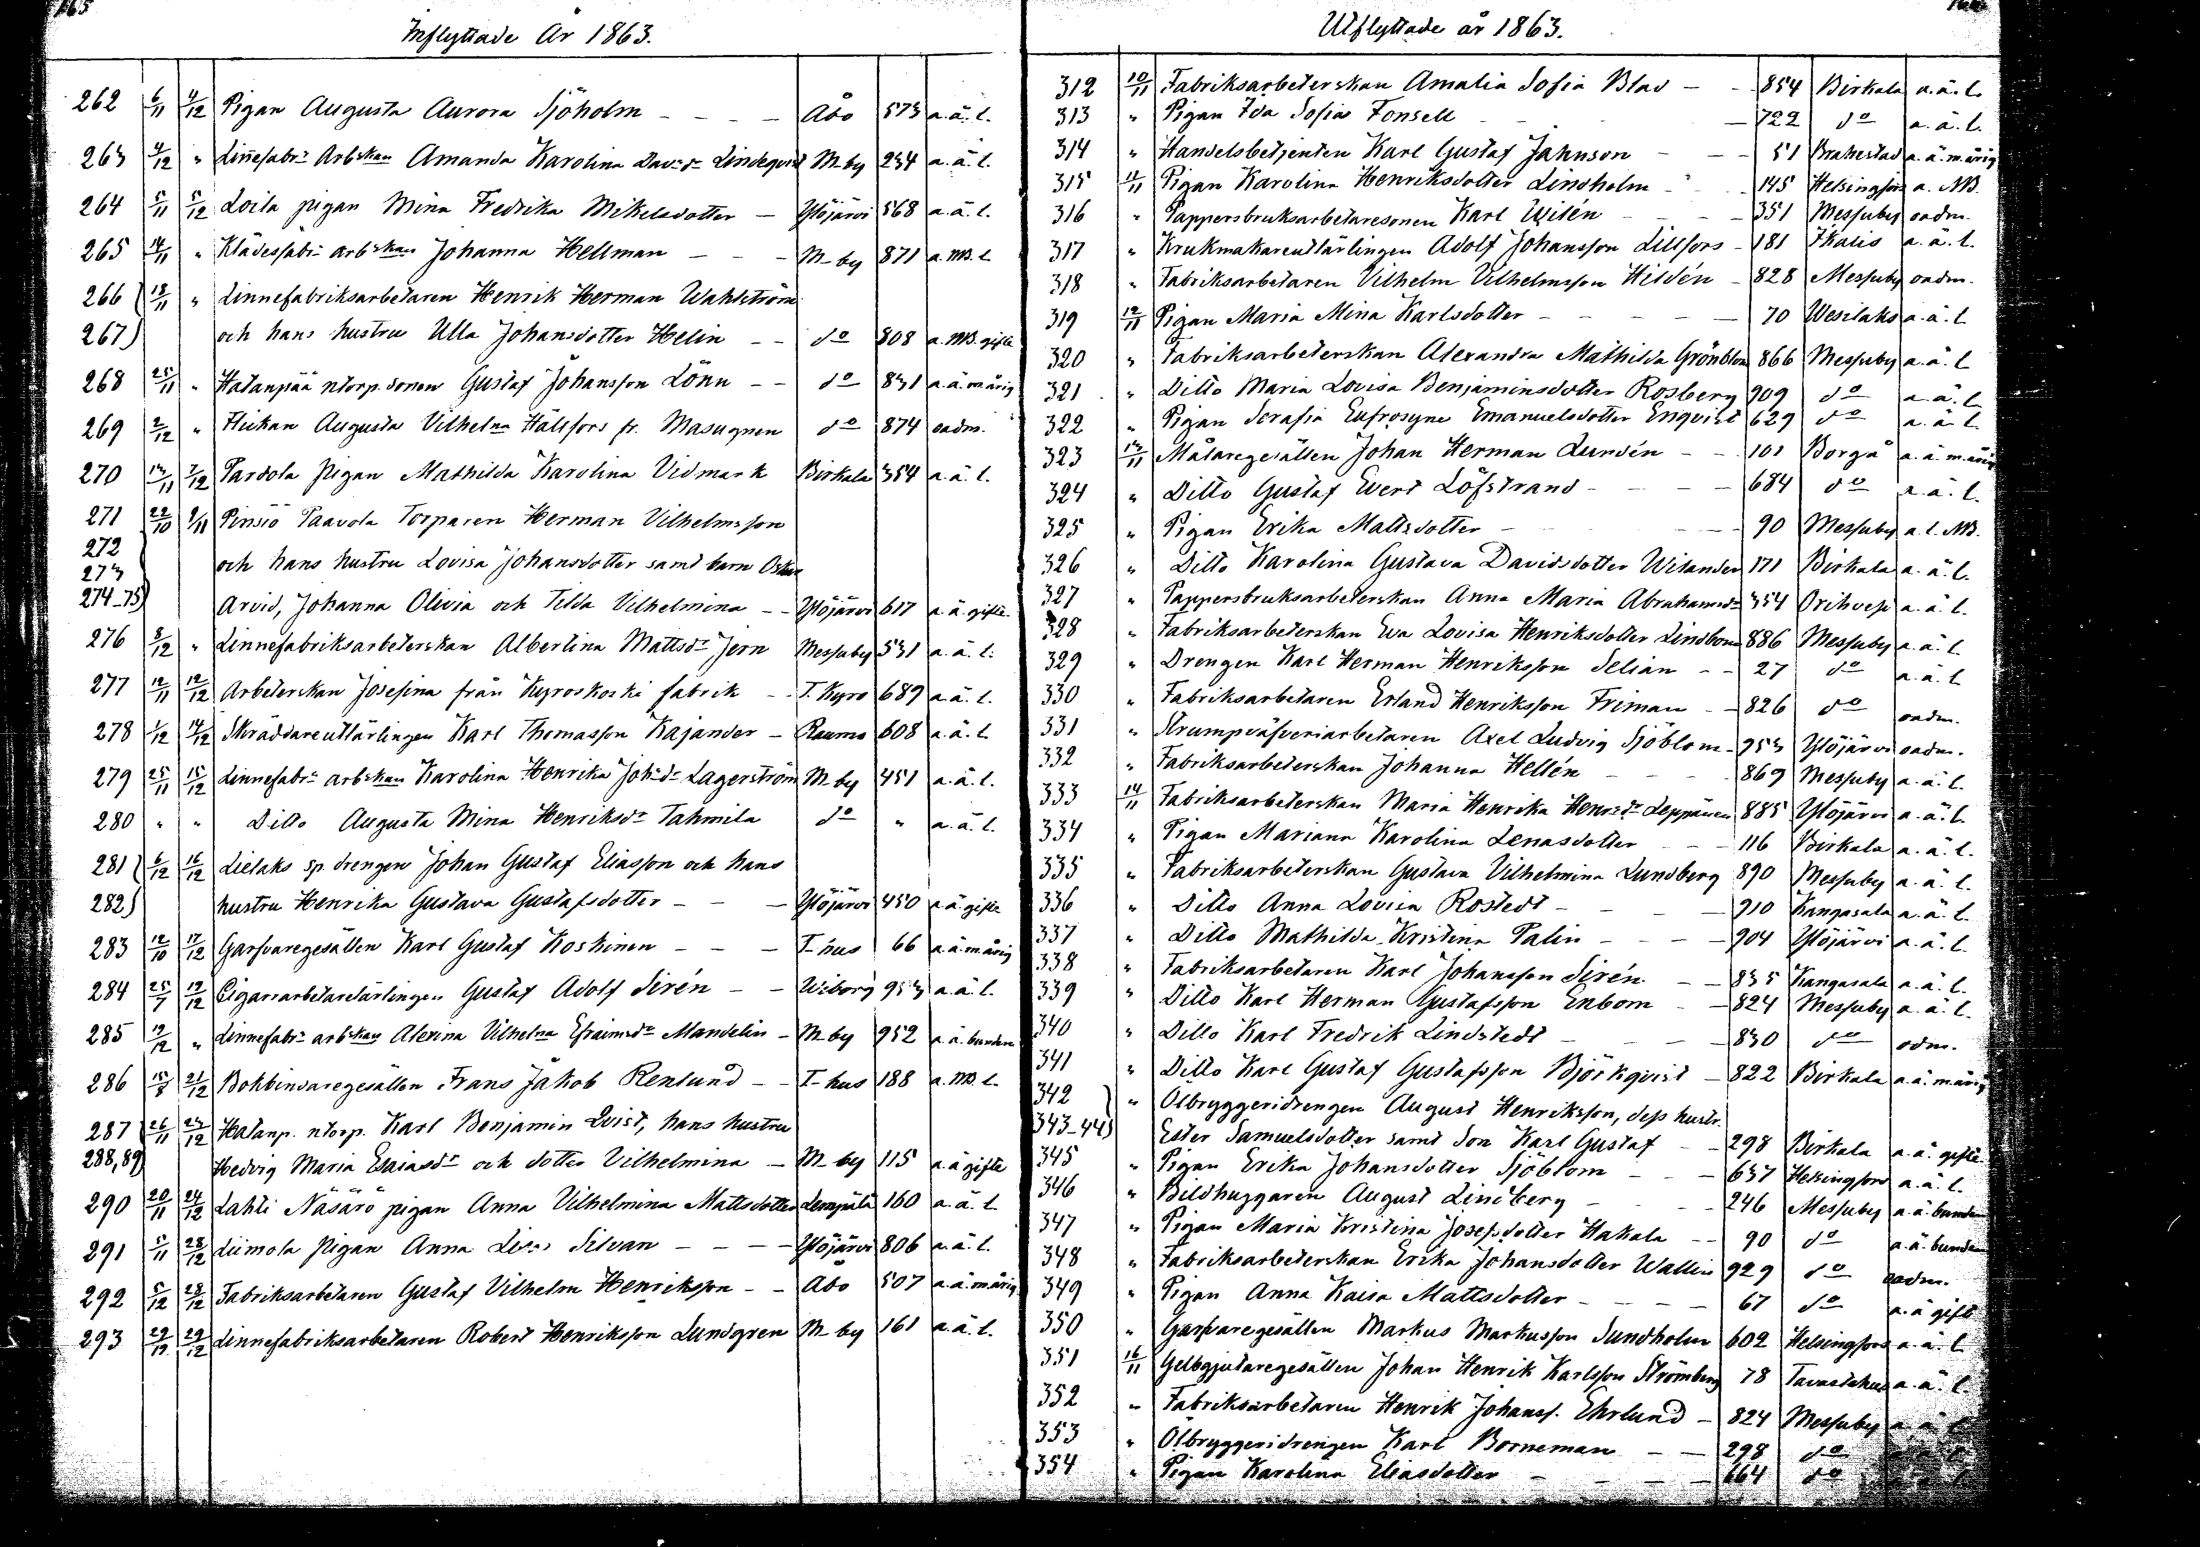 165
Inflyttade År 1863.
262 6/11 4/12 Pigan Augusta Aurora Sjöholm - - - - Åbo 573 a.ä.l.
263 4/12 " Linnefabr. Arbskan Amanda Karolina Davdr Lindeqvist M-by 234 a.ä.l.
264 5/11 5/12 Loila pigan Mina Fredrika Mikelsdotter - Ylöjärvi 568 a.ä.l.
265 14/11 " Klädesfabr. arbskan Johanna Hellman - - - M-by 871 a.NB.l
266 18/11 " Linnefabriksarbetaren Henrik Herman Wahlström
267) och hans hustru Ulla Johansdotter Helin - - do 808 a.NB.gifte
268 25/11 " Hatanpää ntorp.sonen Gustaf Johansson Lönn - - do 831 a.ä.mårig
269 2/12 " Flickan Augusta Vilhelna Hälsfors fr. Masugnen do 874 oadm.
270 13/11 7/12 Pardola pigan Mathilda Karolina Vidmark Birkala 354 a.ä.l.
271 22/10 9/11 Pinsiö Paavola Torparen Herman Vilhelmsson
272
273 och hans hustru Lovisa Johansdotter samt barn Oskar
274-75) Arvid, Johanna Olivia och Tilda Vilhelmina - - Ylöjärvi 617 a.ä.gifte
276 8/12 " Linnefabriksarbeterskan Albertina Mattsdr Jern Messuby 531 a.ä.l.
277 12/11 12/12 Arbeterskan Josefina från Kyroskoski fabrik - - T.Kyro 689 a.ä.l.
278 1/12 14/12 Skräddareutlärlingen Karl Thomasson Kajander - Raumo 608 a.ä.l.
279 25/11 15/12 Linnefabr. arbskan Karolina Henrika Johdr Lagerström M-by 451 a.ä.l.
280 " " Ditto Augusta Mina Henriksdr Tahmila do " a.ä.l.
281 6/12 16/12 Lielaks sp.drengen Johan Gustaf Eliasson och hans
282) hustru Henrika Gustava Gustafsdotter - - - Ylöjärvi 450 a.ä.gifte
283 12/10 17/12 Garfvaregesällen Karl Gustaf Koskinen - - - T-hus 66 a.ä.mårig
284 25/7 19/12 Cigarrarbetarelärlingen Gustaf Adolf Sirén - - Wiborg 953 a.ä.l.
285 19/12 " Linnefabr. arbskan Alexina Vilhelna Efraimsdr Mandelin - M-by 952 a.ä.bunden
286 15/8 21/12 Bokbindaregesällen Frans Jakob Renlund - - T-hus 188 a.NB.l.
287 26/11 23/12 Hatanp. ntorp. Karl Benjamin Qvist, hans hustru
288,89) Hedvig Maria Esaiasdr och dotter Vilhelmina - M-by 115 a.ä.gifte
290 20/11 24/12 Lahti Näsärö pigan Anna Vilhelmina Mattsdotter Lempäla 160 a.ä.l
291 5/11 28/12 Liimola pigan Anna Lisa Silvan - - - Ylöjärvi 806 a.ä.l.
292 5/12 28/12 Fabriksarbetaren Gustaf Vilhelm Henriksson - - Åbo 507 a.ä.mårig
293 29/12 29/12 Linnefabriksarbetaren Robert Henriksson Lundgren M-by 161 a.ä.l.
Utflyttade år 1863.
312 10/11 Fabriksarbeterskan Amalia Sofia Blad - - 854 Birkala a.ä.l.
313 " Pigan Ida Sofia Fonsell - - 722 do a.ä.l.
314 " Handelsbetjenten Karl Gustaf Jahnson - - - 51 Brahestad a.ä.m.årig
315 11/11 Pigan Karolina Henriksdotter Lindholm - - 145 Helsingfors a.NB.
316 " Pappersbruksarbetaresonen Karl Wilén - - - 351 Messuby oadm.
317 " Krukmakareutlärlingen Adolf Johansson Lillfors - 181 Ikalis a.ä.l.
318 " Fabriksarbetaren Vilhelm Vilhelmsson Hildén - 828 Messuby oadm.
319 12/11 Pigan Maria Mina Karlsdotter - - - - 70 Wesilaks a.ä.l
320 " Fabriksarbeterskan Alexandra Mathilda Grönblom 866 Messuby a.ä.l
321 " Ditto Maria Lovisa Benjaminsdotter Rosberg 909 do a.ä.l
322 " Pigan Serafia Eufrosyne Emanuelsdotter Enqvist 629 do a.ä.l
323 13/11 Målaregesällen Johan Herman Lundén - - 101 Borgå a.ä.m.årig
324 " Ditto Gustaf Evert Löfstrand - - - - 684 do a.ä.l.
325 " Pigan Erika Mattsdotter - - - 90 Messuby a.l.NB.
326 " Ditto Karolina Gustava Davidsdotter Wilander 171 Birkala a.ä.l.
327 " Pappersbruksarbeterskan Anna Maria Abrahamsdr 354 Orihvesi a.ä.l.
328 " Fabriksarbeterskan Eva Lovisa Henriksdotter Lindbom 886 Messuby a.ä.l
329 " Drengen Karl Herman Henriksson Selian - - 27 do a.ä.l
330 " Fabriksarbetaren Erland Henriksson Friman - 826 do oadm.
331 " Strumpväfveriarbetaren Axel Ludvig Sjöblom - 953 Ylöjärvi oadm.
332 " Fabriksarbeterskan Johanna Hellén - - - 869 Messuby a.ä.l.
333 14/11 Fabriksarbeterskan Maria Henrika Henrsdr Leppänen 885 Ylöjärvi a.ä.l
334 " Pigan Mariana Karolina Lenasdotter - - 116 Birkala a.ä.l.
335 " Fabriksarbeterskan Gustava Vilhelmina Lundberg 890 Messuby a.ä.l.
336 " Ditto Anna Lovisa Rostedt - - - - 910 Kangasala a.ä.l.
337 " Ditto Mathilda Kristina Palin - - - - 904 Ylöjärvi a.ä.l.
338 " Fabriksarbetaren Karl Johansson Sirén - - 835 Kangasala a.ä.l.
339 " Ditto Karl Herman Gustafsson Enbom - - 824 Messuby a.ä.l.
340 " Ditto Karl Fredrik Lindstedt - - - - 830 do odm.
341 " Ditto Karl Gustaf Gustafsson Björkqvist - 822 Birkala a.ä.mårig
342 " Ölbryggeridrengen August Henriksson, dess hustr.
343-44) Ester Samuelsdotter samt Son Karl Gustaf - - 298 Birkala a.ä.gifte
345 " Pigan Erika Johansdotter Sjöblom - - - 637 Helsingfors a.ä.l.
346 " Bildhuggaren August Lindberg - - - - 246 Messuby a.ä.bunden
347 " Pigan Maria Kristina Josefsdotter Hakala - - 90 do a.ä.bunden
348 " Fabriksarbeterskan Erika Johansdotter Wallin 929 do oadm.
349 " Pigan Anna Kaisa Mattsdotter - - - - 67 do a.ä gift
350 " Garfvaregesällen Markus Markusson Sundholm 602 Helsingfors a.ä.l
351 16/11 Gelbgjutaregesällen Johan Henrik Karlsson Strömberg 78 Tavastehus a.ä.l.
352 " Fabriksarbetaren Henrik Johanss. Ehrlund - 824 Messuby a.ä.l
353 " Ölbryggeridrengen Karl Borneman - - - 298 do
354 " Pigan Karolina Eliasdotter - - - - 664 do